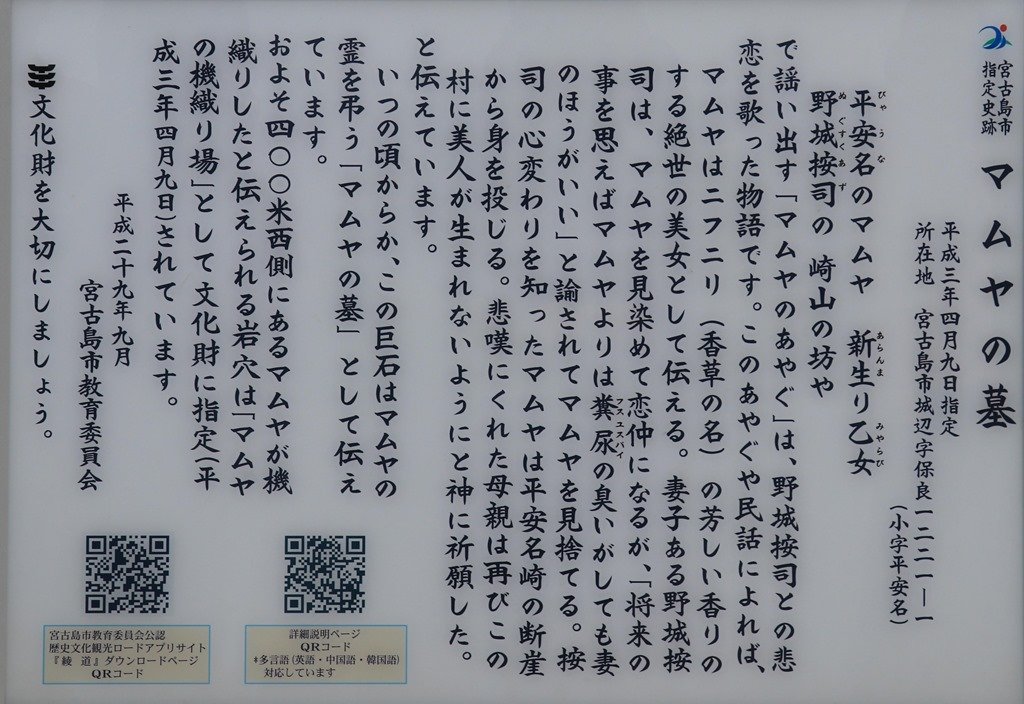 宮古島市
指定史跡
マムヤの墓
平成三年四月九日指定
所在地 宮古島市城辺字保良一二二一―一
(小字平安名)
平安名のマムヤ 新生り乙女
びやうな
あらんま
みやらび
野城按司の 崎山の坊や
ぬぐすくあず
で謡い出す「マムヤのあやぐ」は、野城按司との悲
恋を歌った物語です。このあやぐや民話によれば、
マムヤはニフニリ(香草の名)の芳しい香りの
する絶世の美女として伝える。妻子ある野城按
司は、マムヤを見染めて恋仲になるが、「将来の
事を思えばマムヤよりは糞尿の臭いがしても妻
フスユスバイ
のほうがいい」と諭されてマムヤを見捨てる。按
司の心変わりを知ったマムヤは平安名崎の断崖
から身を投じる。悲嘆にくれた母親は再びこの
村に美人が生まれないようにと神に祈願した。
と伝えています。
いつの頃からか、この巨石はマムヤの
霊を弔う「マムヤの墓」として伝え
ています。
およそ四〇〇米西側にあるマムヤが機
織りしたと伝えられる岩穴は「マムヤ
の機織り場」として文化財に指定(平
成三年四月九日)されています。
平成二十九年九月
宮古島市教育委員会
文化財を大切にしましょう。
詳細説明ページ
QRコード
*多言語(英語・中国語・韓国語)
対応しています
宮古島市教育委員会公認
歴史文化観光ロードアプリサイト
『綾 道』ダウンロードページ
QRコード